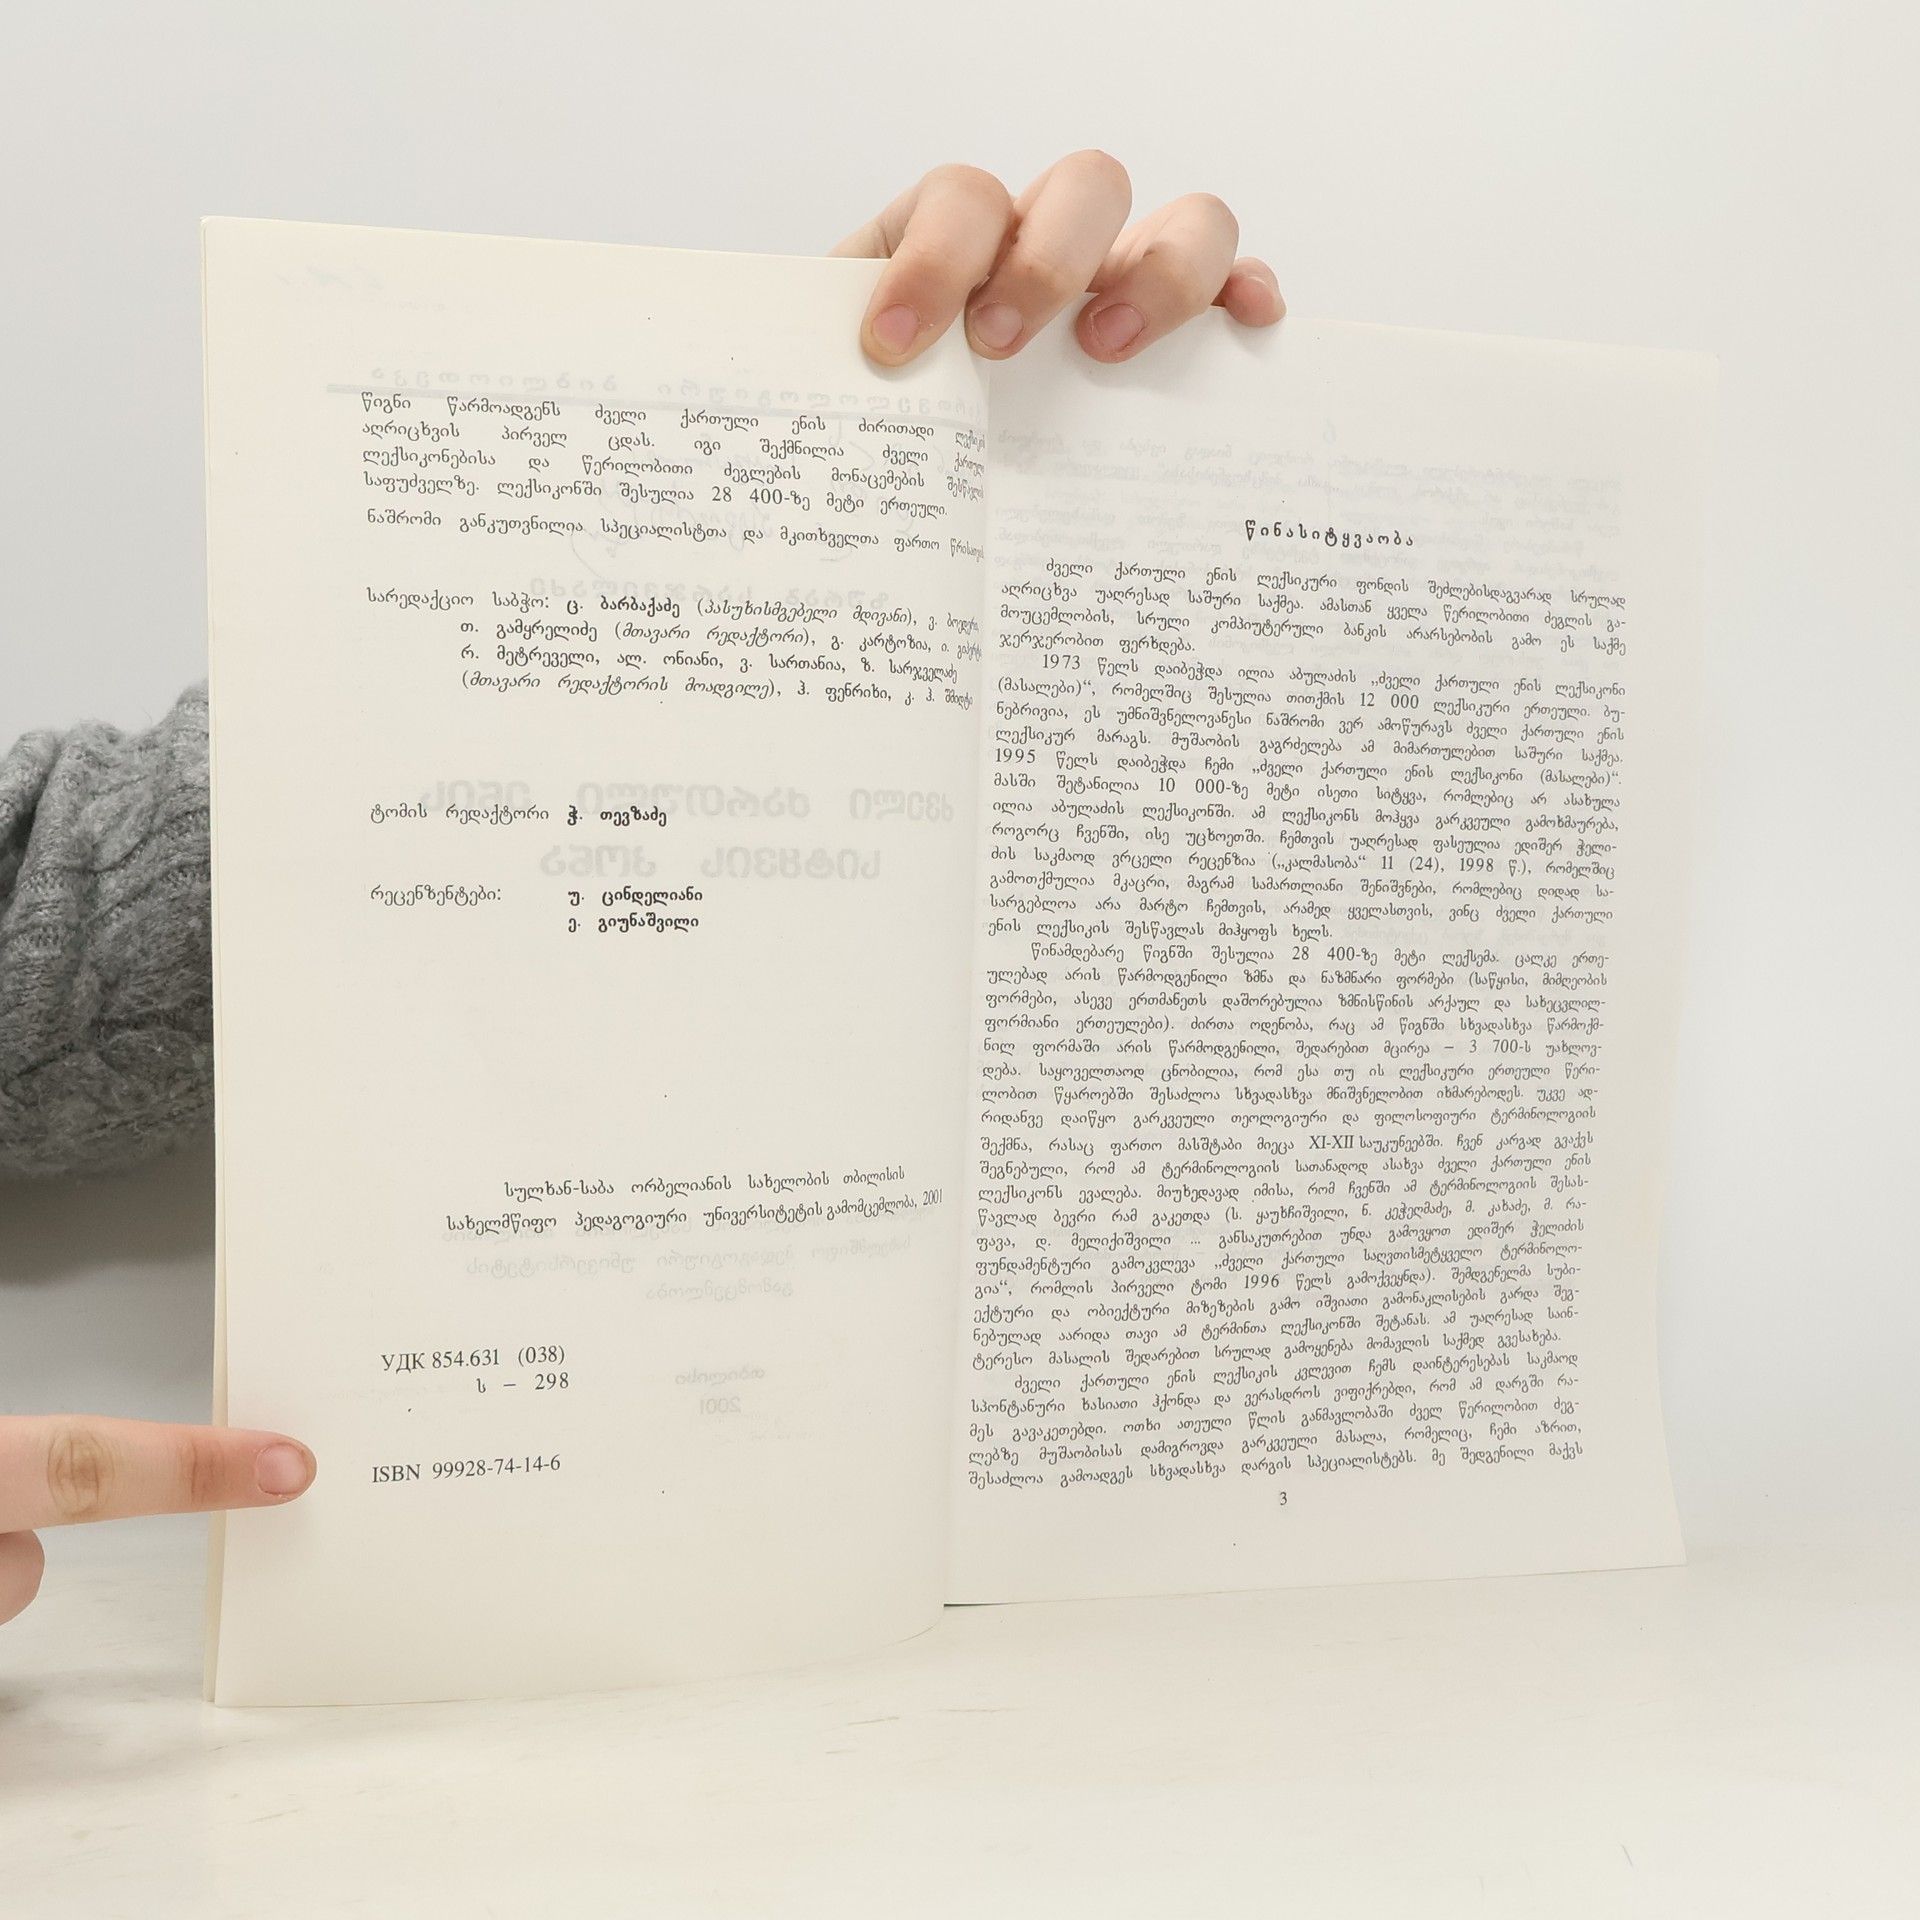 წიგნი წარმოადგენს ძველი ქართული ენის ძირითადი ლექსიკის
აღრიცხვის პირველ ცდას. იგი შექმნილია ძველი ქართული
ლექსიკონებისა და წერილობითი ძეგლების მონაცემების შესწავლის
საფუძველზე. ლექსიკონში შესულია 28 400-ზე მეტი ერთეული.
ნაშრომი განკუთვნილია სპეციალისტთა და მკითხველთა ფართო წრისათვის
სარედაქციო საბჭო: ც. ბარბაქაძე (პასუხისმგებელი მდივანი), ვ. ბოედერი,
თ. გამყრელიძე (მთავარი რედაქტორი), გ. კარტოზია, ი.
რ. მეტრეველი, ალ. ონიანი, ვ. სართანია, ზ. სარჯველაძე
(მთავარი რედაქტორის მოადგილე), ჰ. ფენრიხი, კ. ჰ. შმიდტი
ტომის რედაქტორი ჭ. თევზაძე
რეცენზენტები: უ. ცინდელიანი
ე. გიუნაშვილი
სულხან-საბა ორბელიანის სახელობის თბილისის
სახელმწიფო პედაგოგიური უნივერსიტეტის გამომცემლობა, 2001
УДК 854.631 (038)
ს – 298
ISBN 99928-74-14-6
წინასიტყვაობა
ძველი ქართული ენის ლექსიკური ფონდის შეძლებისდაგვარად სრულად
აღრიცხვა უაღრესად საშური საქმეა. ამასთან ყველა წერილობითი ძეგლის გა-
მოუცემლობის, სრული კომპიუტერული ბანკის არარსებობის გამო ეს საქმე
ჯერჯერობით ფერხდება.
1973 წელს დაიბეჭდა ილია აბულაძის „ძველი ქართული ენის ლექსიკონი
(მასალები)“, რომელშიც შესულია თითქმის 12 000 ლექსიკური ერთეული. ბუ-
ნებრივია, ეს უმნიშვნელოვანესი ნაშრომი ვერ ამოწურავს ძველი ქართული ენის
ლექსიკურ მარაგს. მუშაობის გაგრძელება ამ მიმართულებით საშური საქმეა.
1995 წელს დაიბეჭდა ჩემი „ძველი ქართული ენის ლექსიკონი (მასალები)“.
მასში შეტანილია 10 000-ზე მეტი ისეთი სიტყვა, რომლებიც არ ასახულა
ილია აბულაძის ლექსიკონში. ამ ლექსიკონს მოჰყვა გარკვეული გამოხმაურება,
როგორც ჩვენში, ისე უცხოეთში. ჩემთვის უაღრესად ფასეულია ედიშერ ჭელი-
ძის საკმაოდ ვრცელი რეცენზია („კალმასობა“ 11 (24), 1998 წ.), რომელშიც
გამოთქმულია მკაცრი, მაგრამ სამართლიანი შენიშვნები, რომლებიც დიდად სა-
სარგებლოა არა მარტო ჩემთვის, არამედ ყველასთვის, ვინც ძველი ქართული
ენის ლექსიკის შესწავლას მიჰყოფს ხელს.
წინამდებარე წიგნში შესულია 28 400-ზე მეტი ლექსემა. ცალკე ერთე-
ულებად არის წარმოდგენილი ზმნა და ნაზმნარი ფორმები (საწყისი, მიმღეობის
ფორმები, ასევე ერთმანეთს დაშორებულია ზმნისწინის არქაულ და სახეცვლილ-
ფორმიანი ერთეულები). ძირთა ოდენობა, რაც ამ წიგნში სხვადასხვა წარმოქმ-
ნილ ფორმაში არის წარმოდგენილი, შედარებით მცირეა – 3 700-ს უახლოვ-
დება. საყოველთაოდ ცნობილია, რომ ესა თუ ის ლექსიკური ერთეული წერი-
ლობით წყაროებში შესაძლოა სხვადასხვა მნიშვნელობით იხმარებოდეს. უკვე ად-
რიდანვე დაიწყო გარკვეული თეოლოგიური და ფილოსოფიური ტერმინოლოგიის
შექმნა, რასაც ფართო მასშტაბი მიეცა XI-XII საუკუნეებში. ჩვენ კარგად გვაქვს
შეგნებული, რომ ამ ტერმინოლოგიის სათანადოდ ასახვა ძველი ქართული ენის
ლექსიკონს ევალება. მიუხედავად იმისა, რომ ჩვენში ამ ტერმინოლოგიის შესას-
წავლად ბევრი რამ გაკეთდა (ს. ყაუხჩიშვილი, ნ. კეჭეღმაძე, მ. კახაძე, მ. რა-
ფავა, დ. მელიქიშვილი ... განსაკუთრებით უნდა გამოვყოთ ედიშერ ჭელიძის
ფუნდამენტური გამოკვლევა „ძველი ქართული საღვთისმეტყველო ტერმინოლო-
გია“, რომლის პირველი ტომი 1996 წელს გამოქვეყნდა). შემდგენელმა სუბი-
ექტური და ობიექტური მიზეზების გამო იშვიათი გამონაკლისების გარდა შეგ-
ნებულად აარიდა თავი ამ ტერმინთა ლექსიკონში შეტანას. ამ უაღრესად საინ-
ტერესო მასალის შედარებით სრულად გამოყენება მომავლის საქმედ გვესახება.
ძველი ქართული ენის ლექსიკის კვლევით ჩემს დაინტერესებას საკმაოდ
სპონტანური ხასიათი ჰქონდა და ვერასდროს ვიფიქრებდი, რომ ამ დარგში რა-
მეს გავაკეთებდი. ოთხი ათეული წლის განმავლობაში ძველ წერილობით ძეგ-
ლებზე მუშაობისას დამიგროვდა გარკვეული მასალა, რომელიც, ჩემი აზრით,
შესაძლოა გამოადგეს სხვადასხვა დარგის სპეციალისტებს. მე შედგენილი მაქვს
3